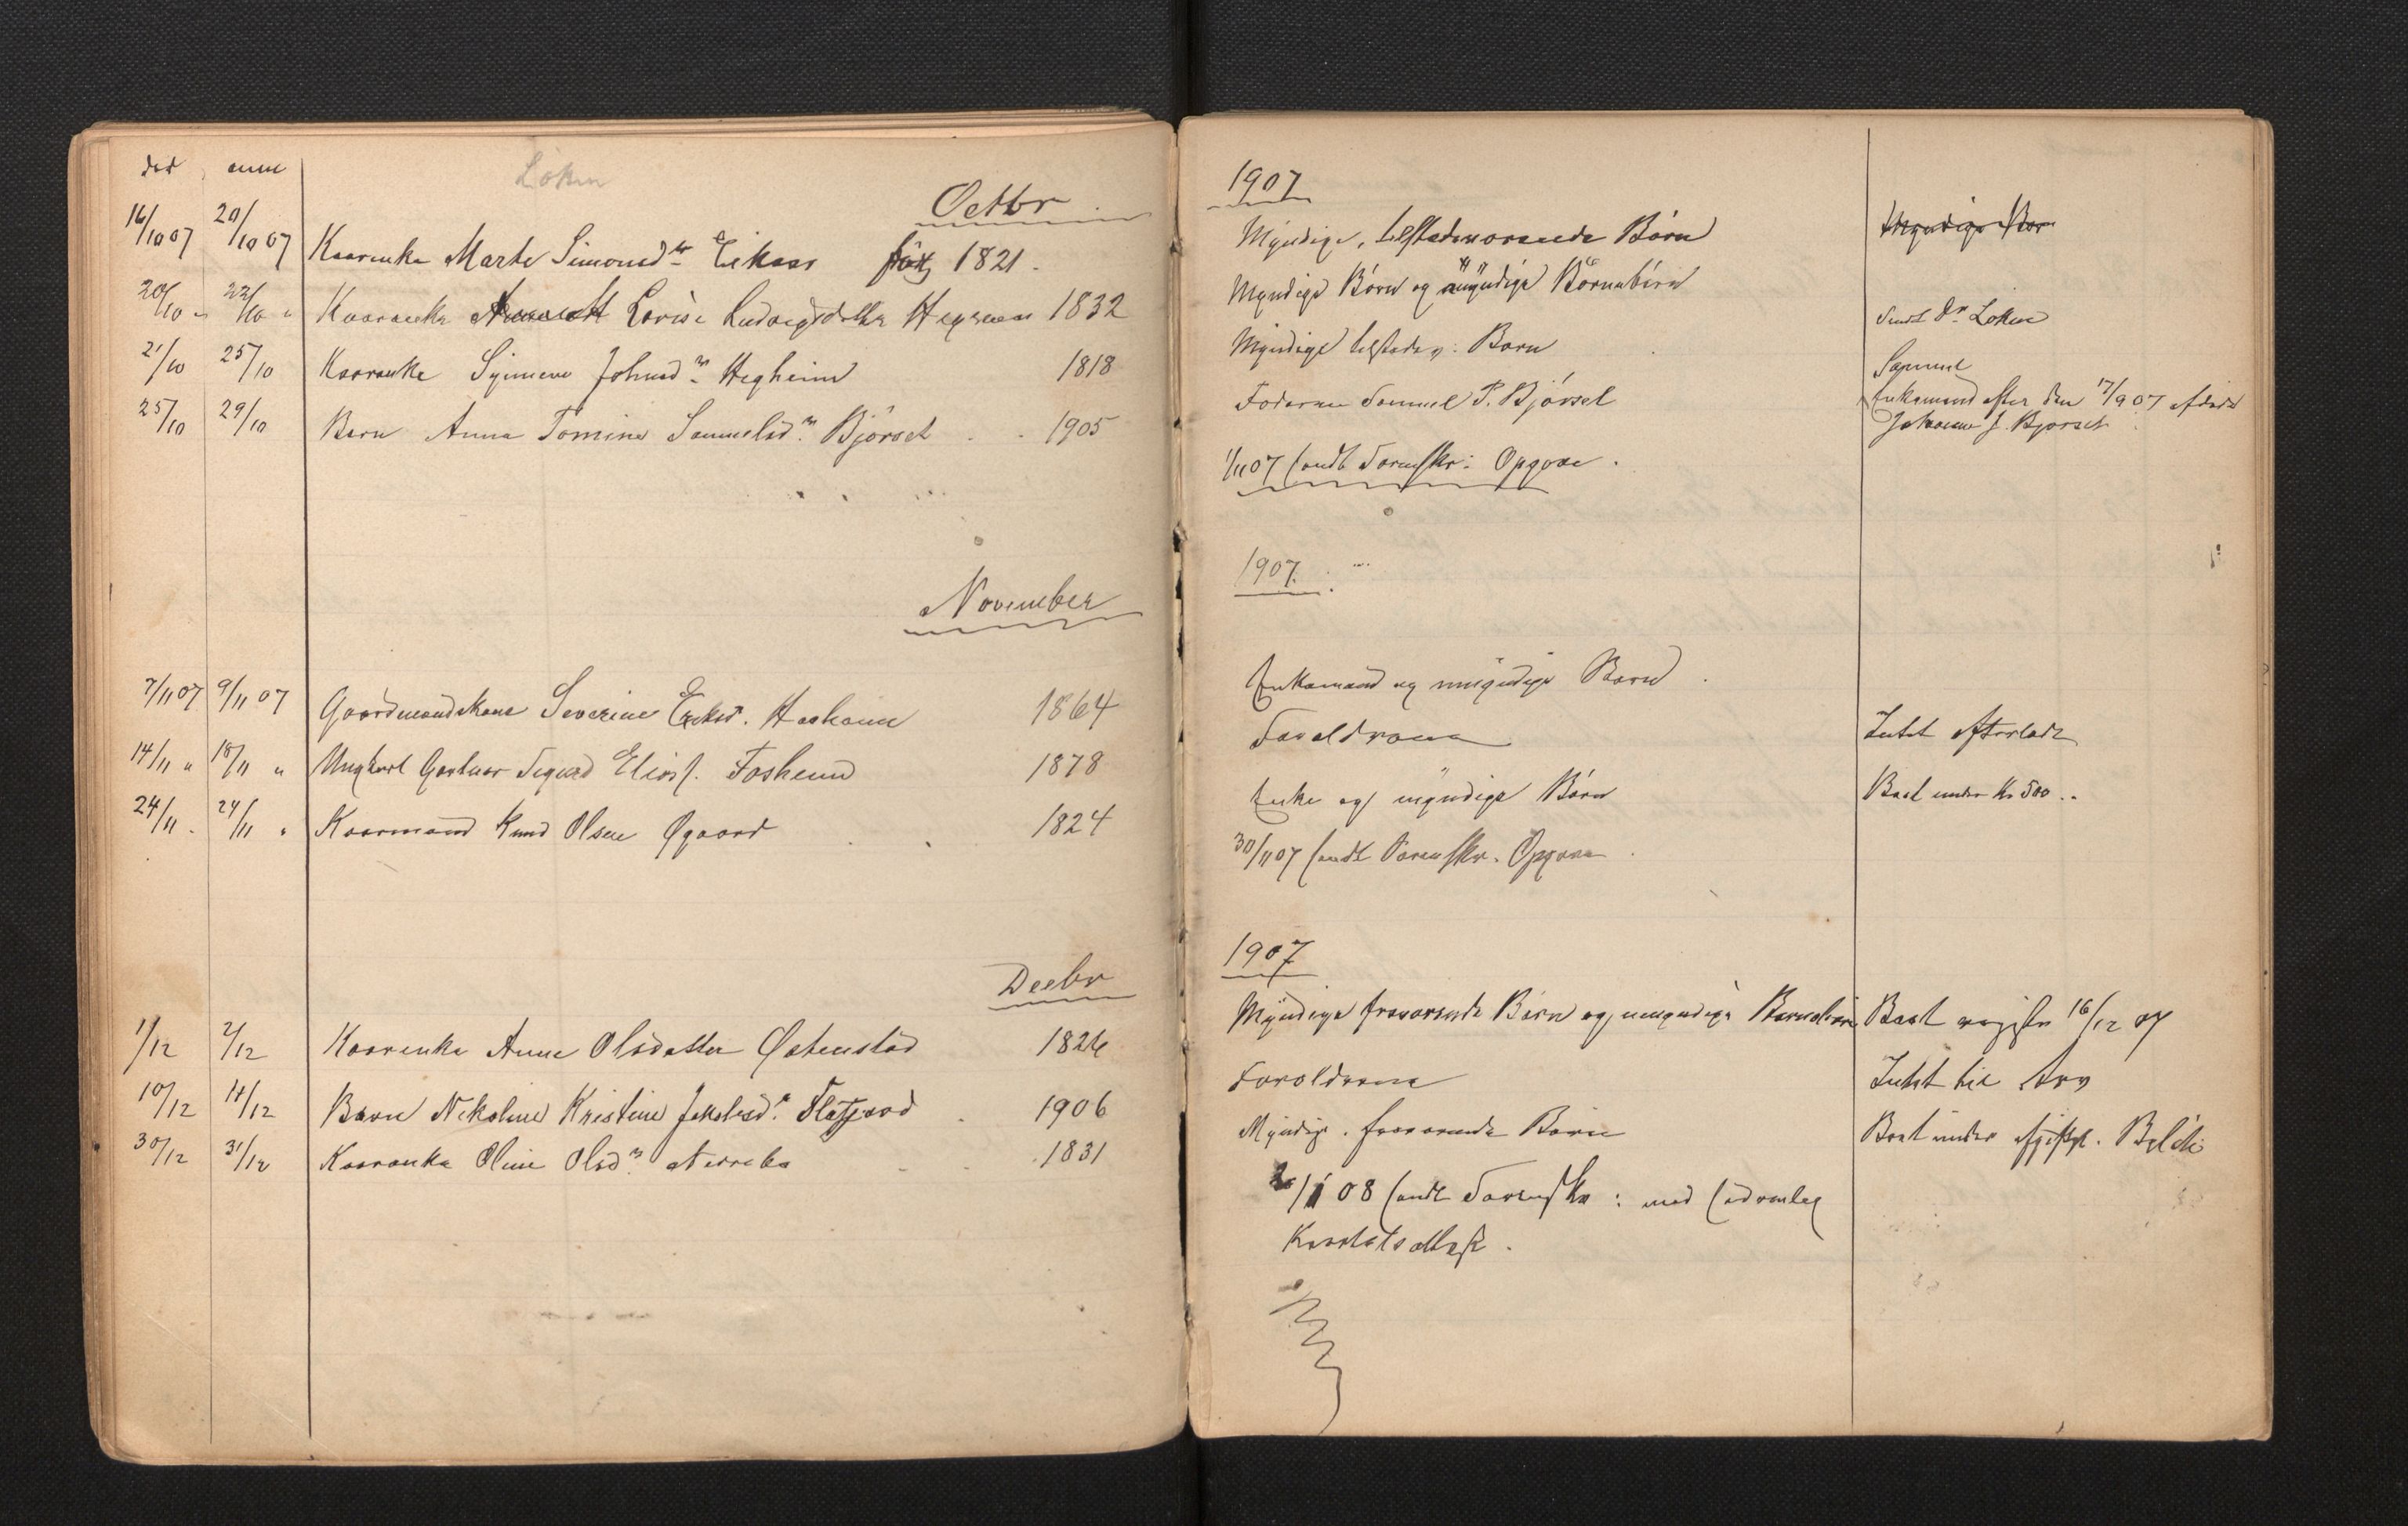 død anm
Løken
Octbr
16/10 07 20/10 07 Kaarenke Marte Simonsdtr Eikaas født 1821.
20/10 " 22/10 " Kaarenke Lovise Ludvigsdatter 1832
21/10 25/10 Kaarenke Synneve Johnsdtr Hegheim 1818
25/10 29/10 Barn Anna Tomine Samuelsdtr Bjørset 1905
November
7/11 07 9/11 07 Gaardmandskone Severine Eriksd. 1864
14/11 " 18/11 " Ungkarl Sigurd Eliasf. Fosheim 1878
24/11 " 24/11 " Kaarmand Knud Olsen Øgaard 1824
Decbr
1/12 2/12 Kaarenke Anne Olsdatter Østenstad 1826
10/12 11/12 Barn Nikoline Kristine Jakobsd. 1906
30/12 31/12 Kaarenke Oline Olsdtr Nedrebø 1831
1907
Myndige, tilstedeværende Børn
Myndige Børn og umyndige Børnebørn
Sendt Dr Løken
Myndige tilstedev: Børn
Samuel
Faderen Samuel P. Bjørset
Enkemand efter den 17/9 07 afdøde
Johanne J. Bjørset
1/11 07 sendt Sorenskr: Opgave.
1907.
Enkemand og umyndige Børn
Forældrene
Intet Efterladt
Enke og myndige Børn
Boet under Kr 500..
30/11 07 sendt Sorenskr. Opgave
1907
Myndige fraværende Børn og umyndige Børnebørn
Boet 16/12 07
Forældrene
Intet til Arv
Myndige fraværende Børn
Boet under Beløb
1 08 sendt Sorenskr: med sædvanleg
Kvartalsattest.